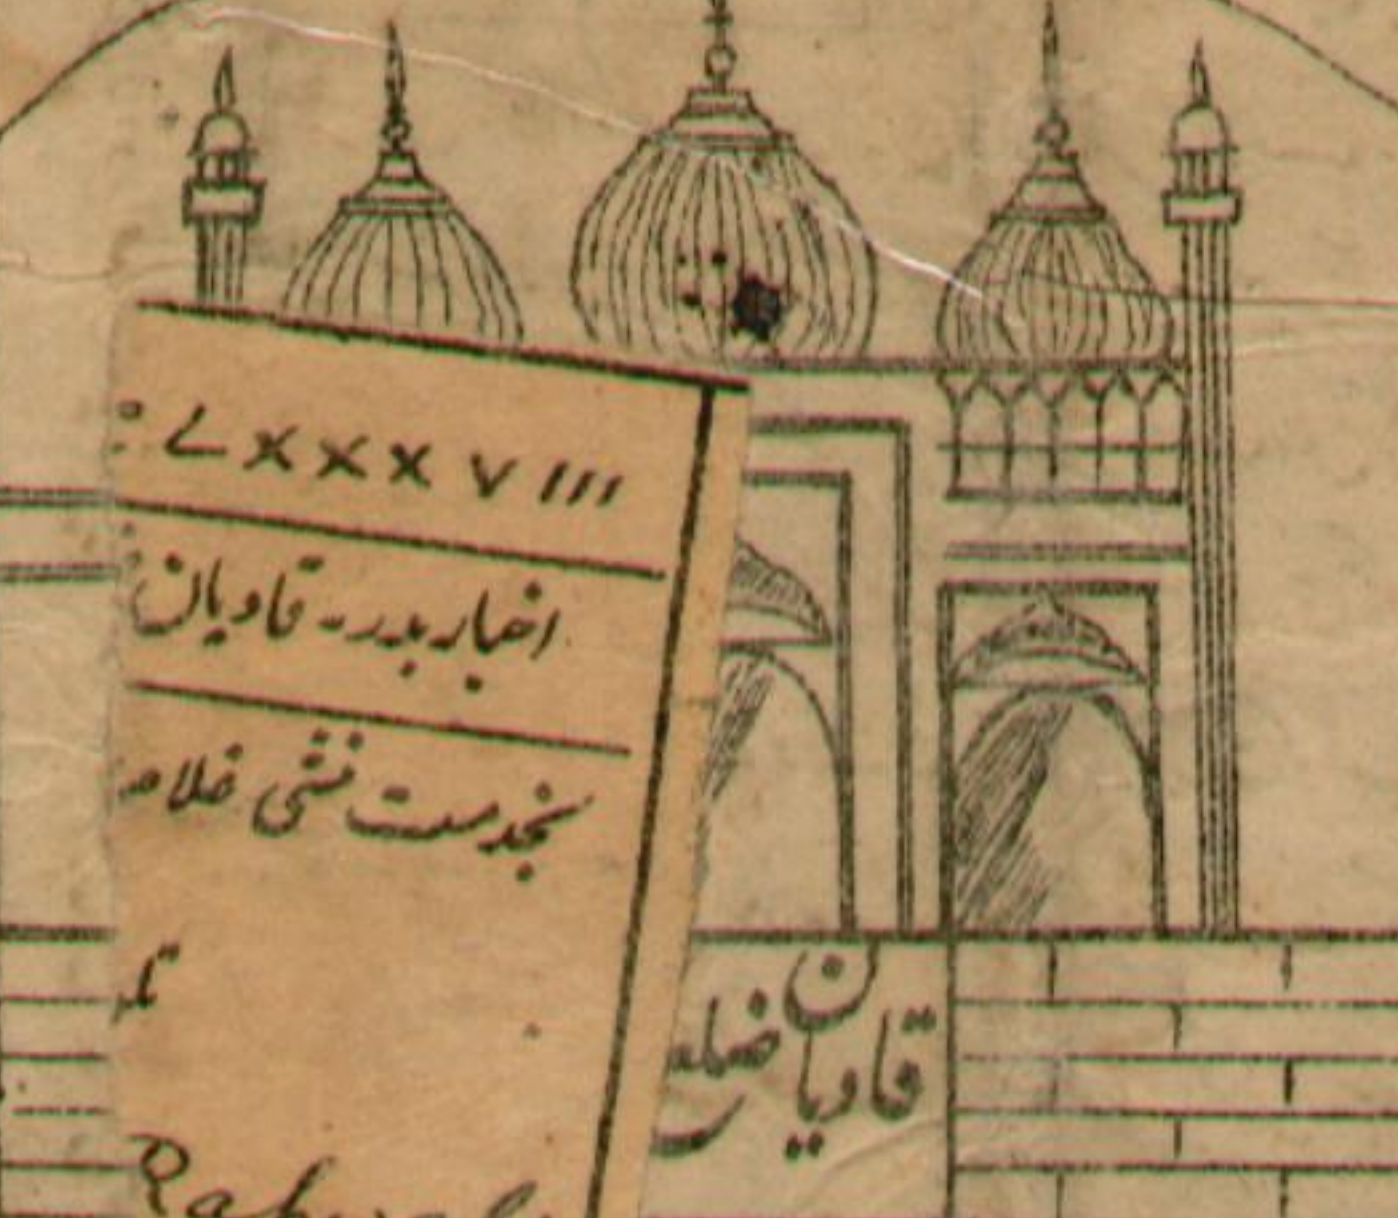 : LXXXVIII
اخبار بدر - قادیان
بخدمت منشی غلام
قادیان ضلع